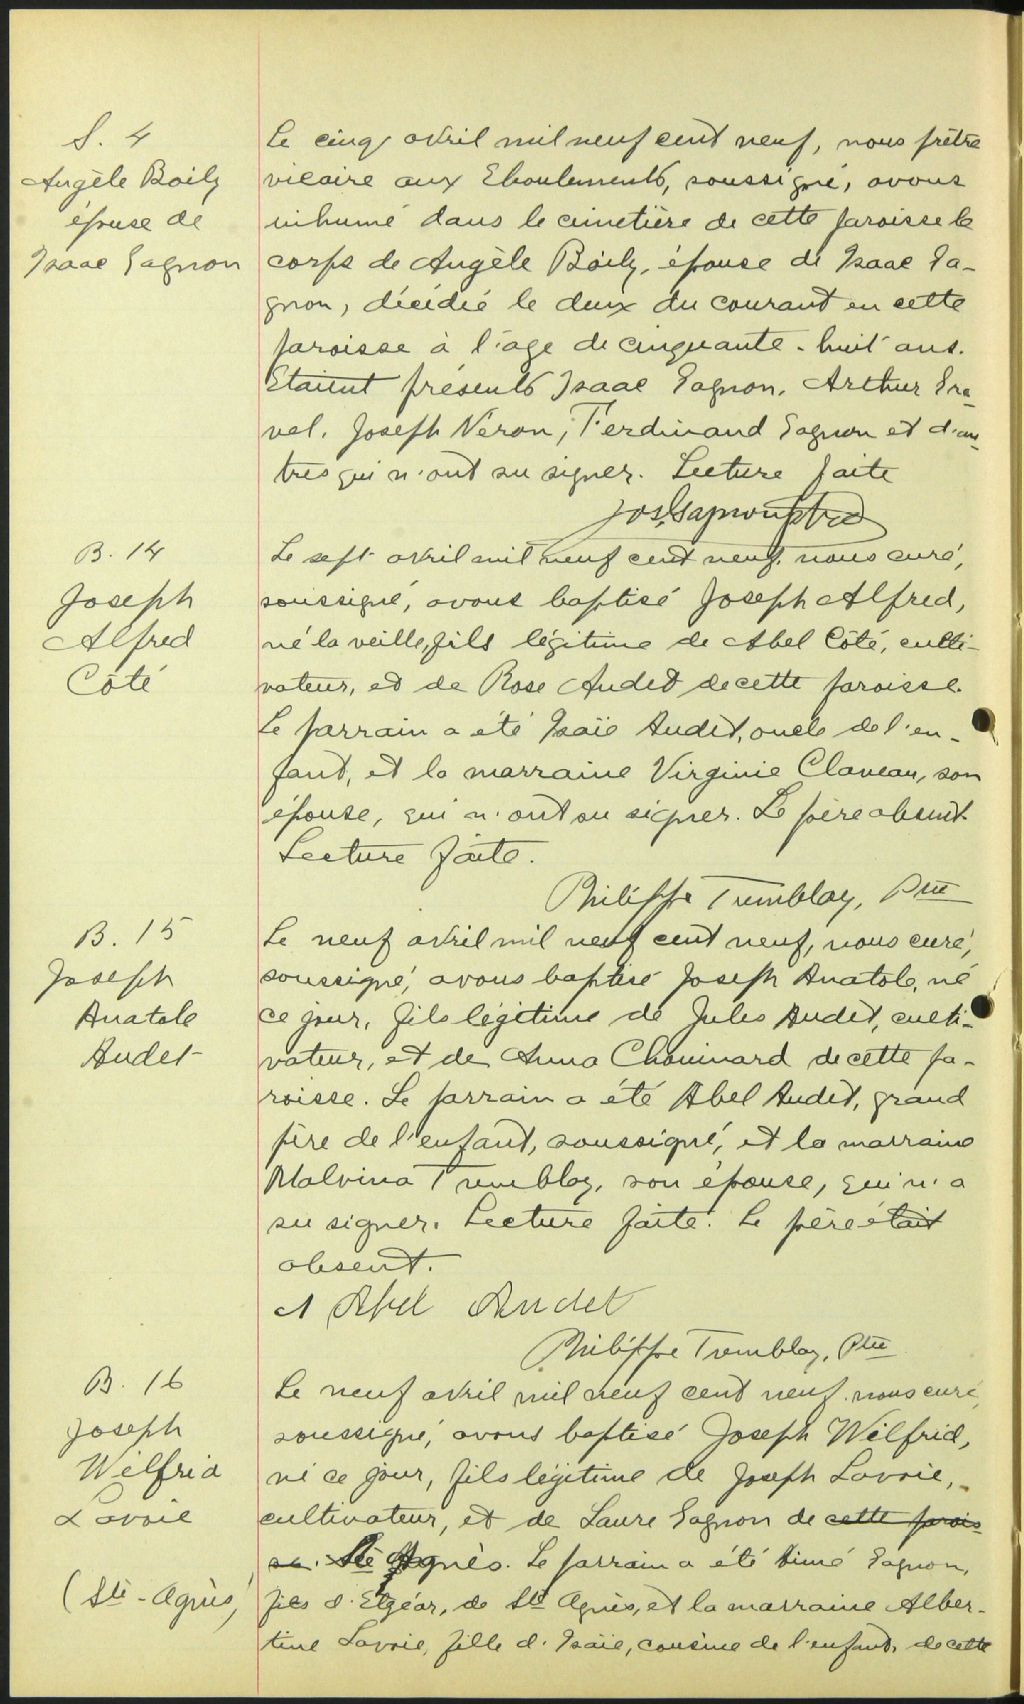 S. 4
Angèle Boily
épouse de
Isaac Gagnon
Le cinq avril mil neuf cent neuf, nous prêtre
vicaire aux Eboulements, soussigné, avons
inhumé dans le cimetière de cette paroisse le
corps de Angèle Boily, épouse de Isaac Ga-
gnon, décédié le deux du courant en cette
paroisse à l'âge de cinquante-huit ans.
Etaient présents Isaac Gagnon, Arthur Gra-
vel, Joseph Néron, Ferdinand Gagnon et d'au-
tres qui n'ont su signer. Lecture faite
Jos. Gagnon ptre
B. 14
Joseph
Alfred
Côté
Le sept avril mil neuf cent neuf, nous curé,
soussigné, avons baptisé Joseph Alfred,
né la veille, fils légitime de Abel Côté, culti-
vateur, et de Rose Audet de cette paroisse.
Le parrain a été Isaïe Audet, oncle de l'en-
fant, et la marraine Virginie Claveau, son
épouse, qui n'ont su signer. Le père absent.
Lecture faite.
Philippe Tremblay, Ptre
B. 15
Joseph
Anatole
Audet
Le neuf avril mil neuf cent neuf, nous curé,
soussigné, avons baptisé Joseph Anatole, né
ce jour, fils légitime de Jules Audet, culti-
vateur, et de Anna Chouinard de cette pa-
roisse. Le parrain a été Abel Audet, grand
père de l'enfant, soussigné, et la marraine
Malvina Tremblay, son épouse, qui n'a
su signer. Lecture faite. Le père était
absent.
Abel Audet
Philippe Tremblay, Ptre
B. 16
Joseph
Wilfrid
Lavoie
(Ste-Agnès)
Le neuf avril mil neuf cent neuf, nous curé,
soussigné, avons baptisé Joseph Wilfrid,
né ce jour, fils légitime de Joseph Lavoie,
cultivateur, et de Laure Gagnon de cette parois-
se. Ste Agnès. Le parrain a été Aimé Gagnon,
fils d'Elzéar, de Ste Agnès, et la marraine Alber-
tine Lavoie, fille d'Isaïe, cousine de l'enfant, de cette